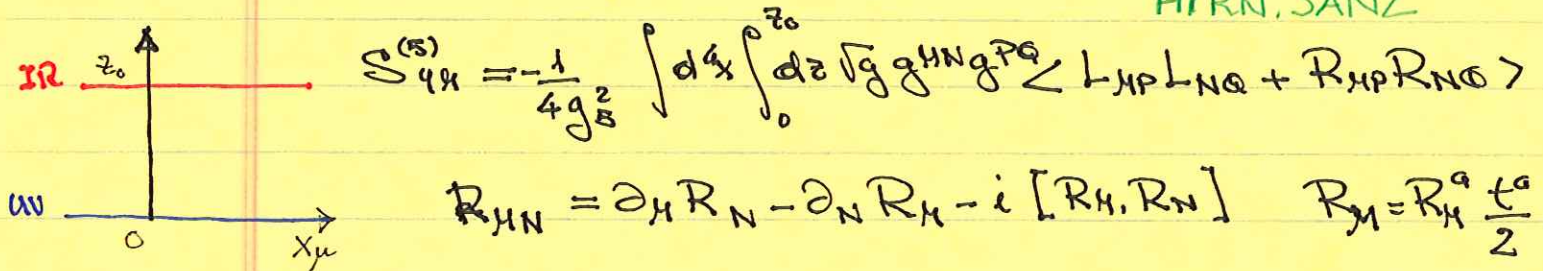 HIRN, SANZ
IR z₀ S_{YM}^{(5)} = -\frac{1}{4g_5^2} \int d^4x \int_0^{z_0} dz \sqrt{g} g^{MN} g^{PQ} < L_{MP} L_{NQ} + R_{MP} R_{NQ} >
UV 0 x_μ R_{MN} = ∂_M R_N - ∂_N R_M - i [R_M, R_N] R_M = R_M^a \frac{t^a}{2}